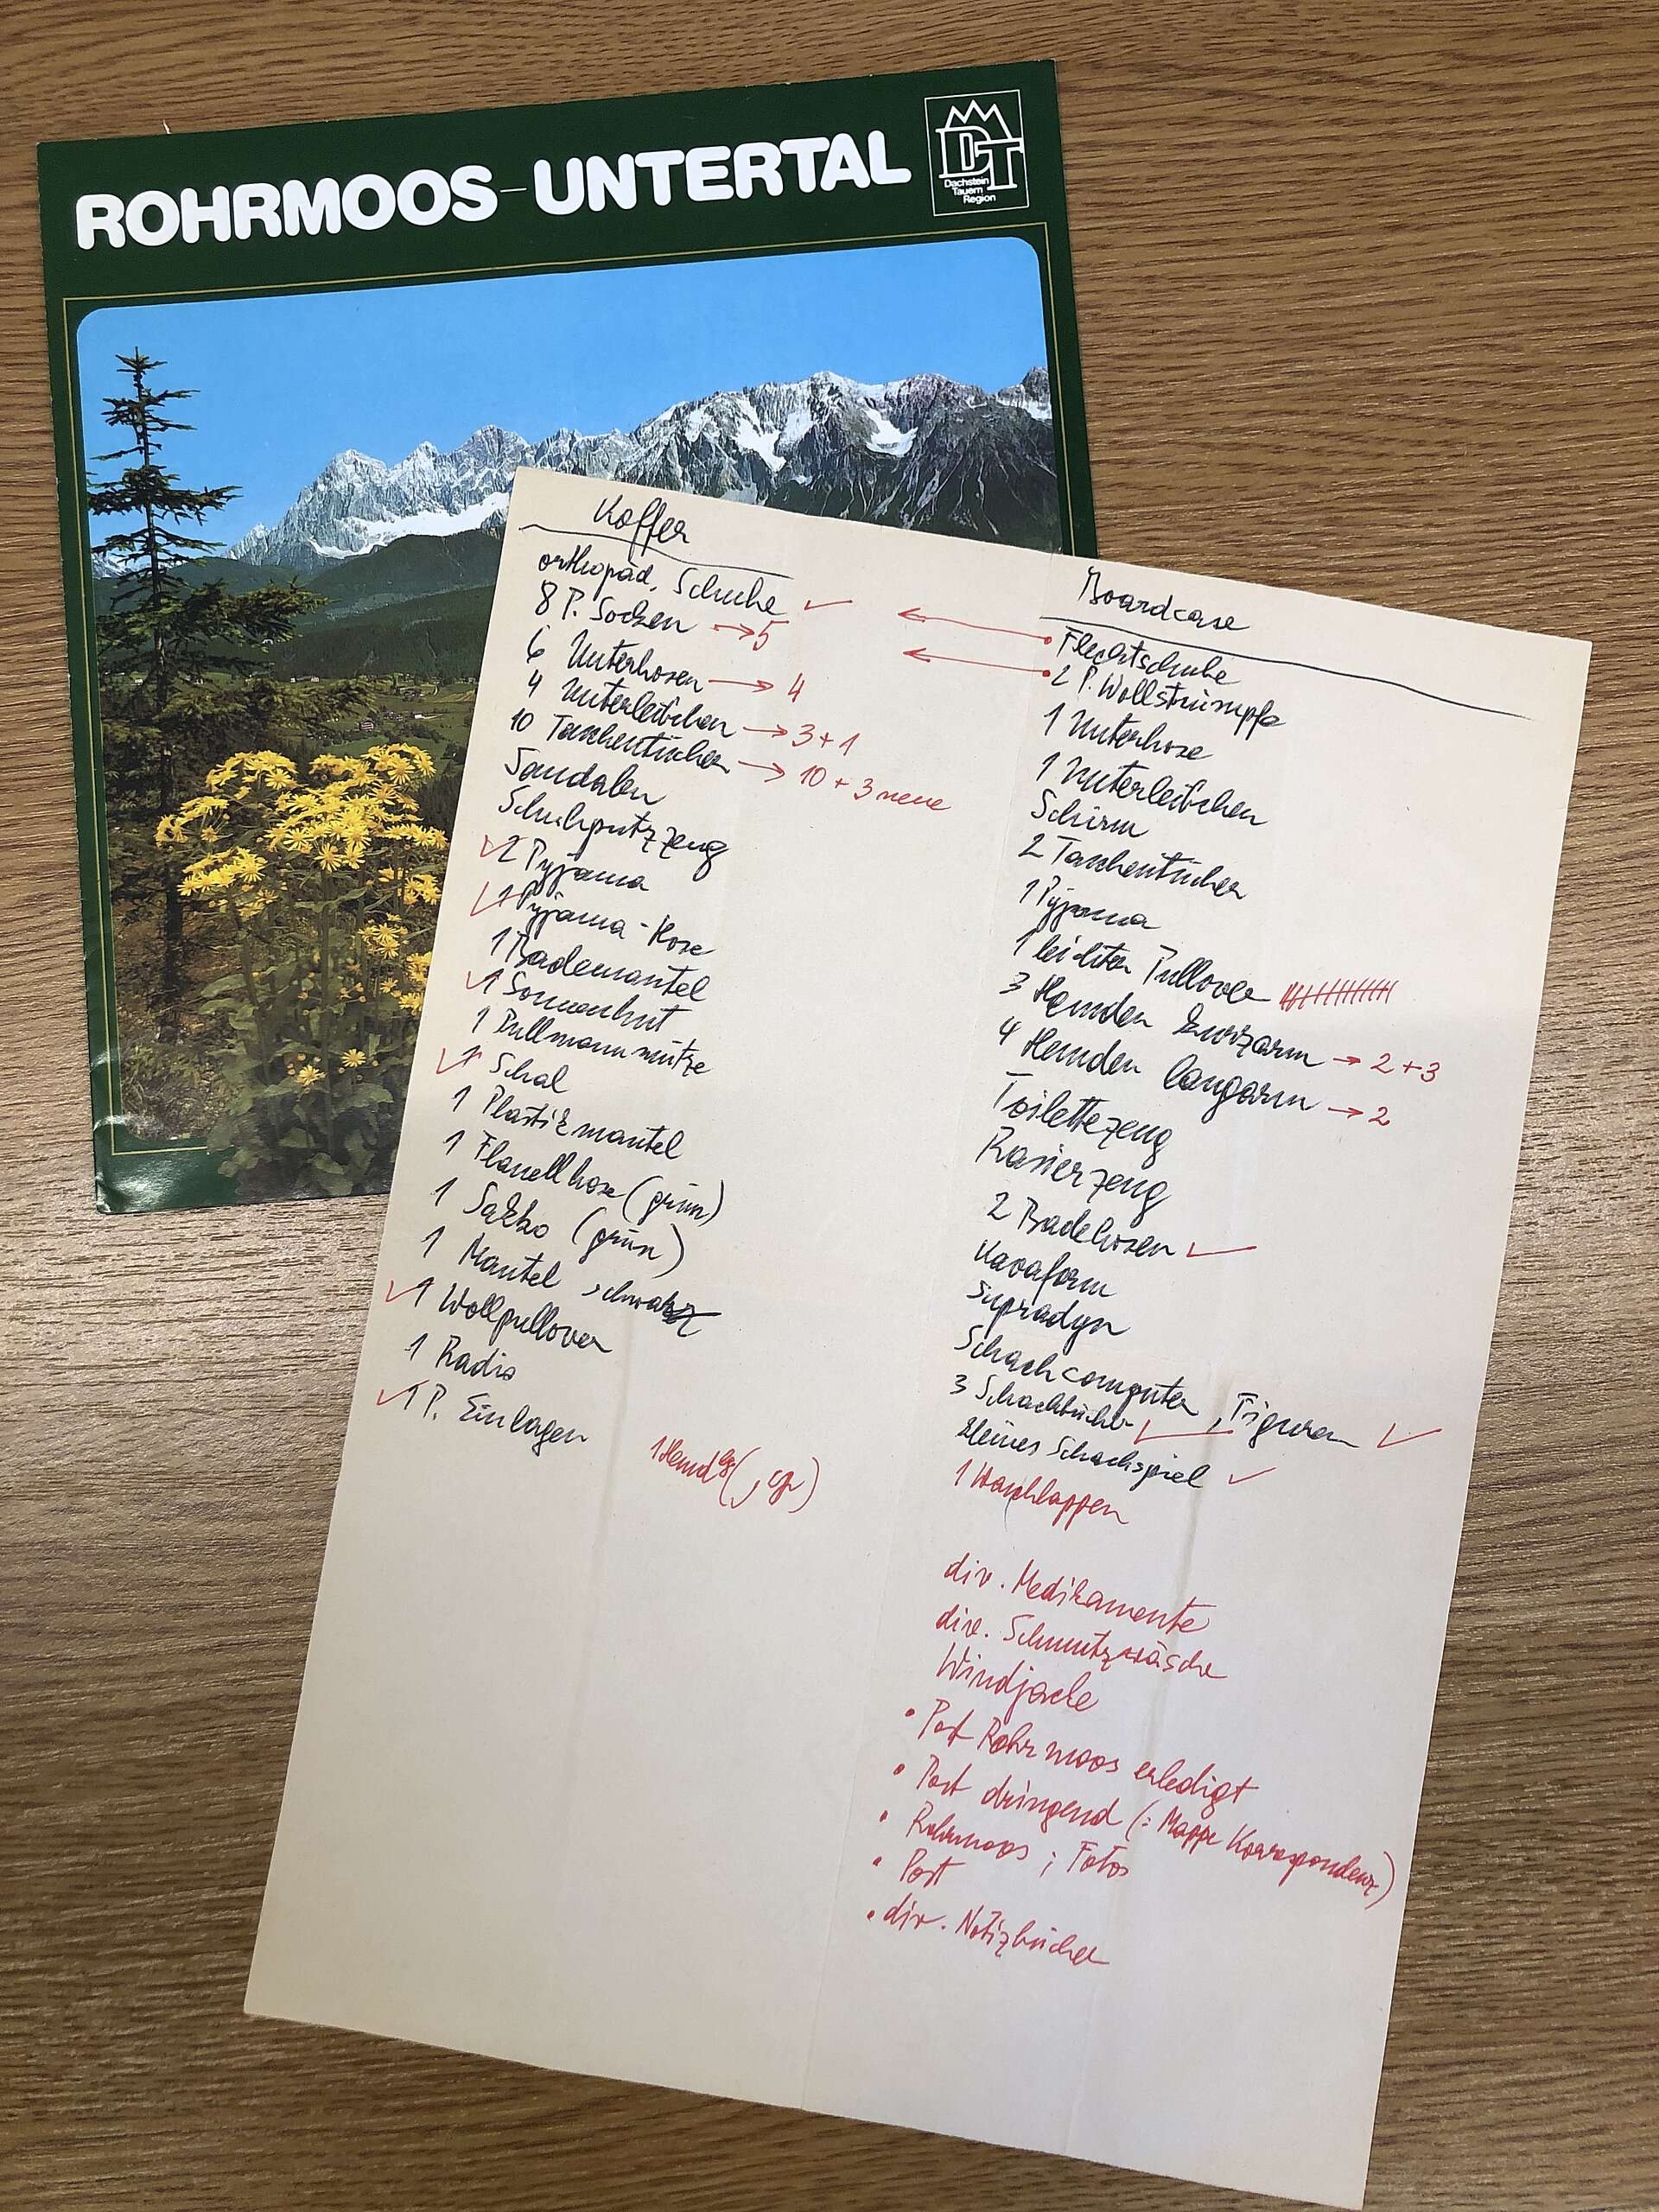 ROHRMOOS-UNTERTAL
DT
Dachstein
Tauern
Region
Koffer
orthopäd. Schuhe ✓
8 P. Socken → 5
6 Unterhosen → 4
4 Unterleibchen → 3+1
10 Taschentücher → 10 + 3 neue
Sandalen
Schuhputzzeug
✓ 2 Pyjama
✓ 1 Pyjama-Hose
1 Bademantel
✓ 1 Sonnenhut
1 Pullmannmütze
✓ 1 Schal
1 Plastikmantel
1 Flanellhose (grün)
1 Sakko (grün)
1 Mantel schwarz
✓ 1 Wollpullover
1 Radio
✓ 1 P. Einlagen
1 Hemd
Boardcase
← • Flechtschuhe
← • 2 P. Wollstrümpfe
1 Unterhose
1 Unterleibchen
Schirm
2 Taschentücher
1 Pyjama
1 leichten Pullover
3 Hemden kurzarm → 2+3
4 Hemden langarm → 2
Toilettezeug
Rasierzeug
2 Badehosen ✓
Kavaform
Supradyn
Schachcomputer, Figuren ✓
3 Schachbücher ✓
kleines Schachspiel ✓
1 Waschlappen
div. Medikamente
div. Schmutzwäsche
Windjacke
• Post Rohrmoos erledigt
• Post dringend (: Mappe Korrespondenz)
• Rohrmoos ; Fotos
• Post
• div. Notizbücher